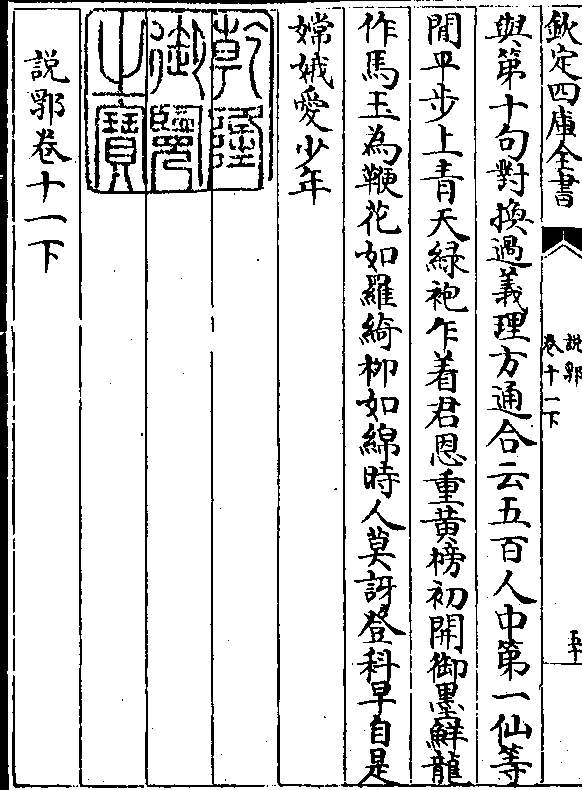 欽定四庫全書
說郛
卷十一下
五十
與第十句對換過義理方通合云五百人中第一仙等
閒平步上青天緑袍乍着君恩重黄榜初開御墨鮮龍
作馬玉為鞭花如羅綺栁如綿時人莫訝登科早自是
嫦娥愛少年
乾隆
御覽
之寶
說郛卷十一下